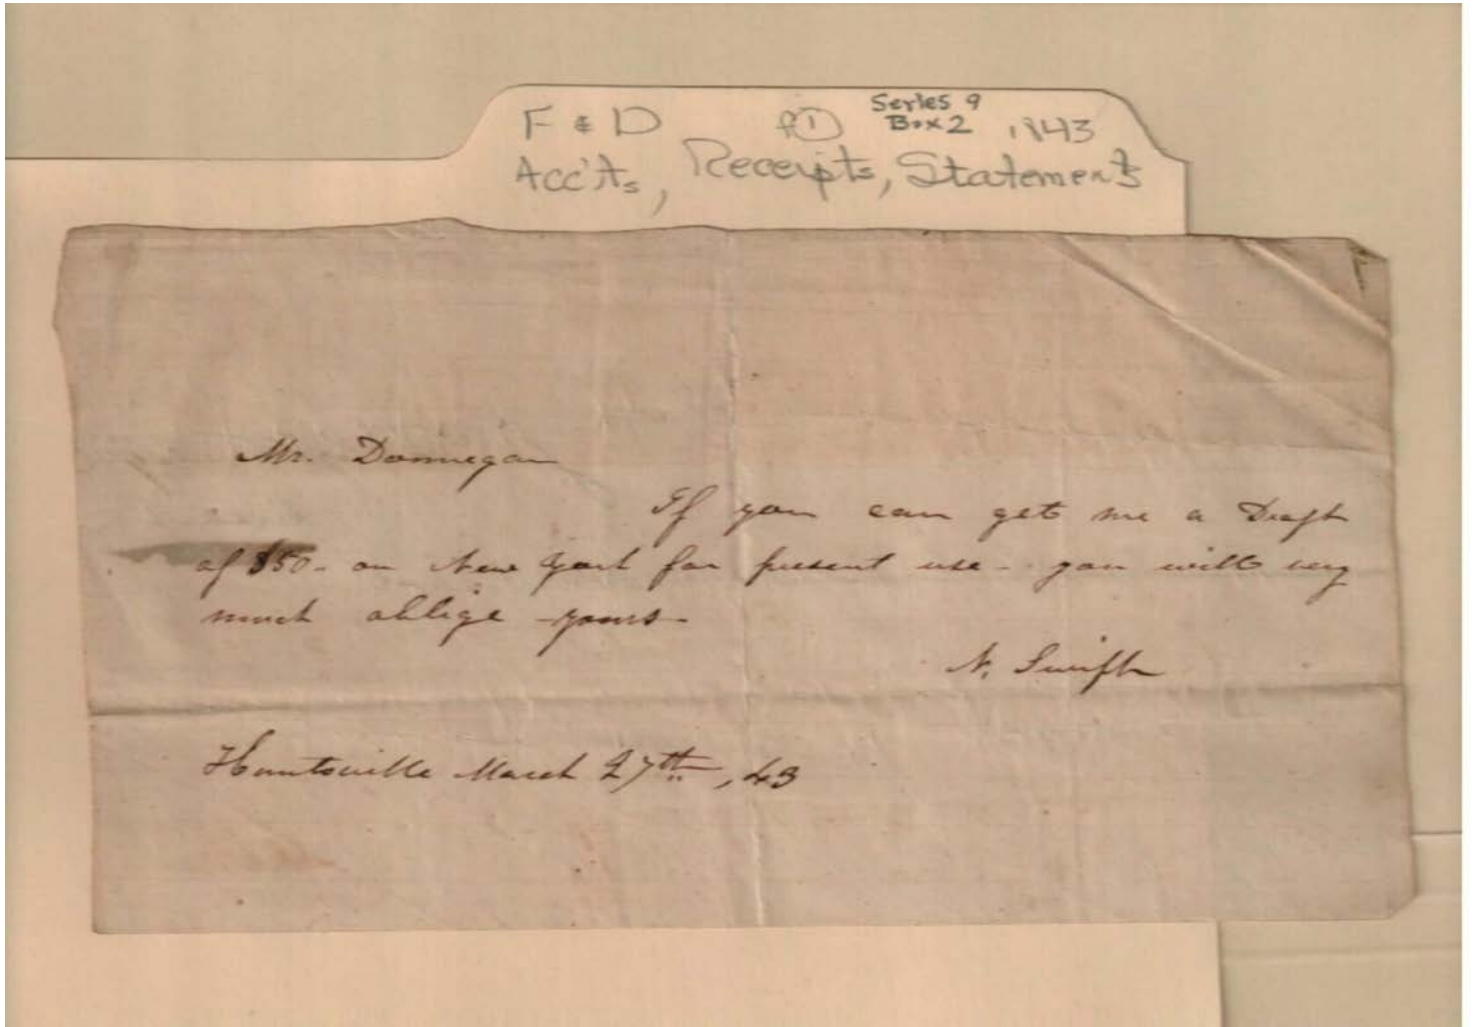 F & D f① Series 9 1843
Box 2
Acc'ts, Receipts, Statements
Mr. Donnegan
If you can get me a Draft
of $50- on New York for present use - you will very
much oblige - yours -
N. Swift
Huntsville March 27th, 43